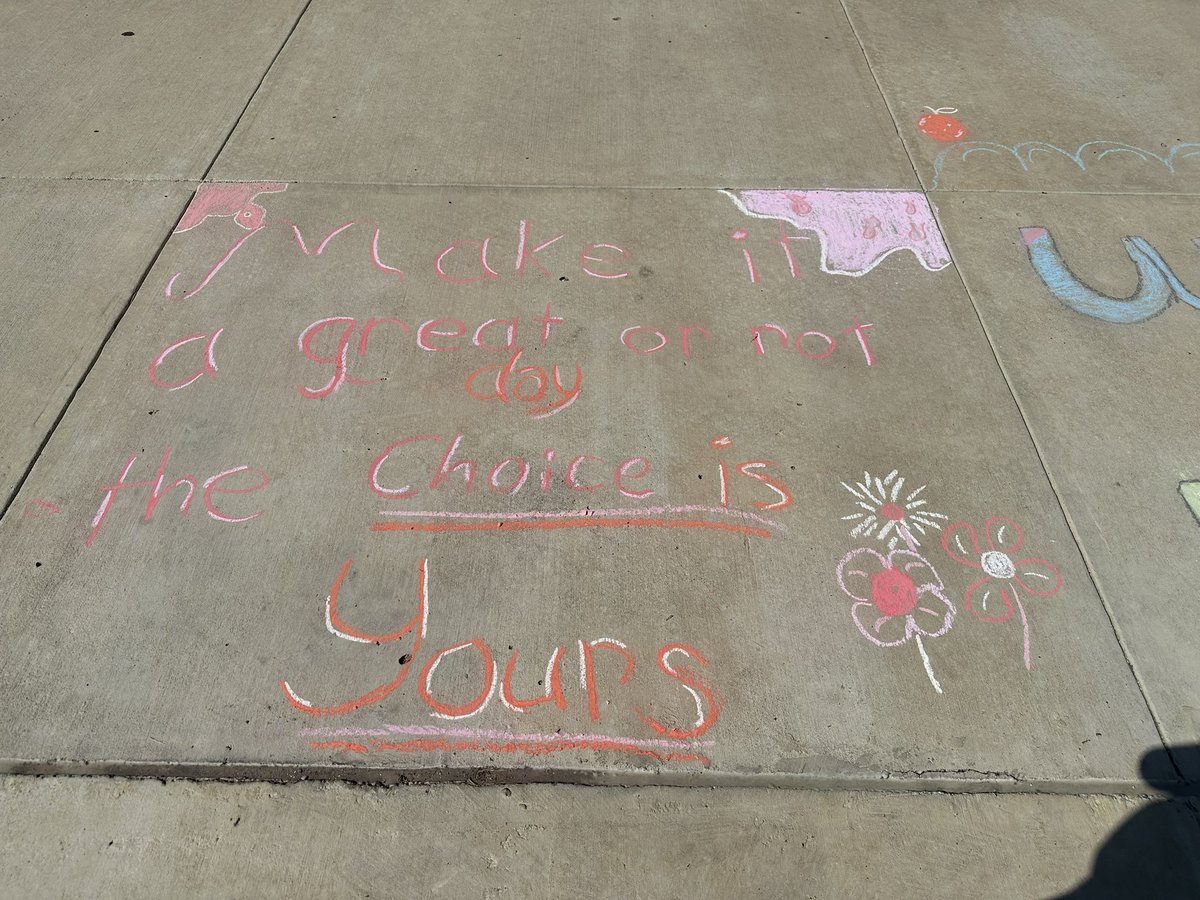 Make it
a great or not
day
the Choice is
Yours
u